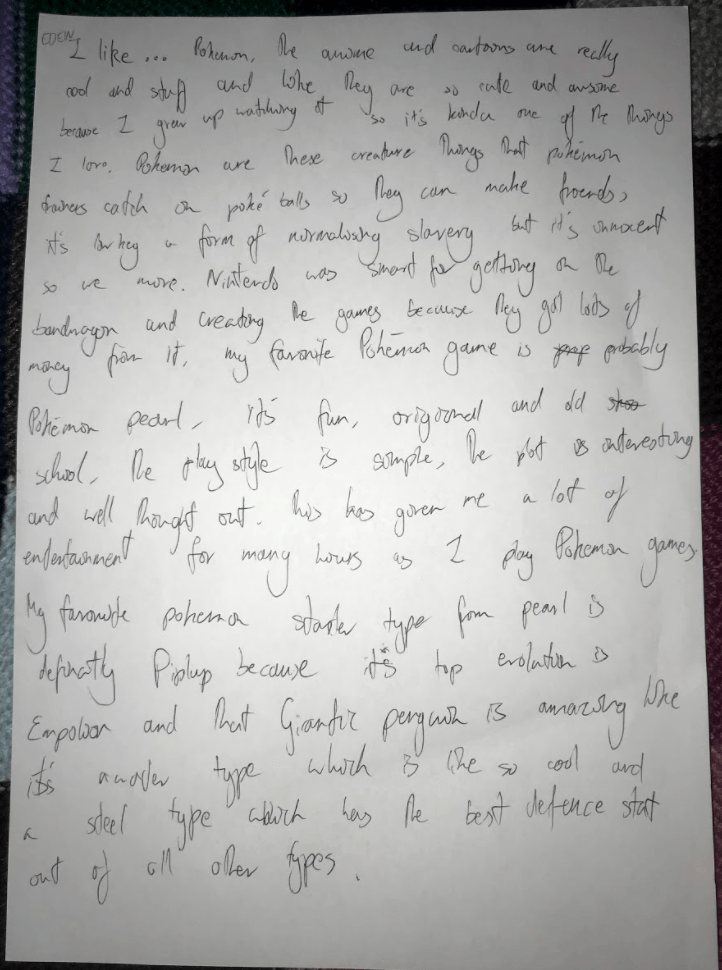 EDEN
I like ... Pokemon, The anime and cartoons are really
cool and stuff and like They are so cute and awsome
because I grew up watching it so it's kinda one of The Things
I love. Pokemon are These creature Things That pokémon
trainers catch in poké balls so They can make friends,
it's lowkey a form of normalising slavery but it's innocent
so we move. Nintendo was smart for getting on The
bandwagon and creating The games because They got lots of
money from it, my favorite Pokémon game is probably
Pokémon pearl, it's fun, origional and old
school, The play style is simple, The plot is interesting
and well Thought out. This has given me a lot of
entertainment for many hours as I play Pokemon games.
My favorite pokemon starter type from pearl is
definatly Piplup because it's top evolution is
Empoleon and That Giantic penguin is amazing like
it's a water type which is like so cool and
a steel type which has The best defence stat
out of all other types.